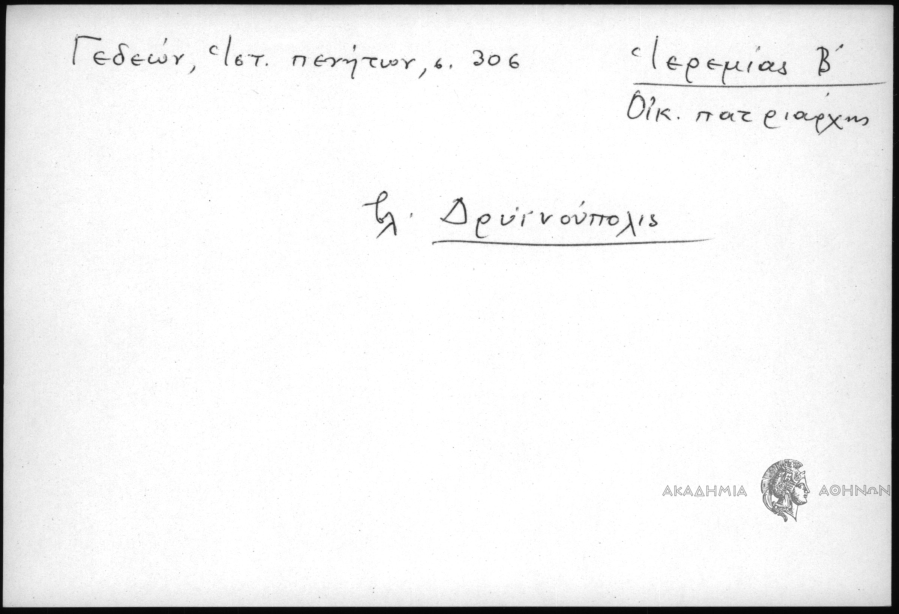 Γεδεών, Ἱστ. πενήτων, σ. 306
Ἱερεμίας Β΄
Οἰκ. πατριάρχης
βλ. Δρυϊνούπολις
ΑΚΑΔΗΜΙΑ ΑΘΗΝΩΝ